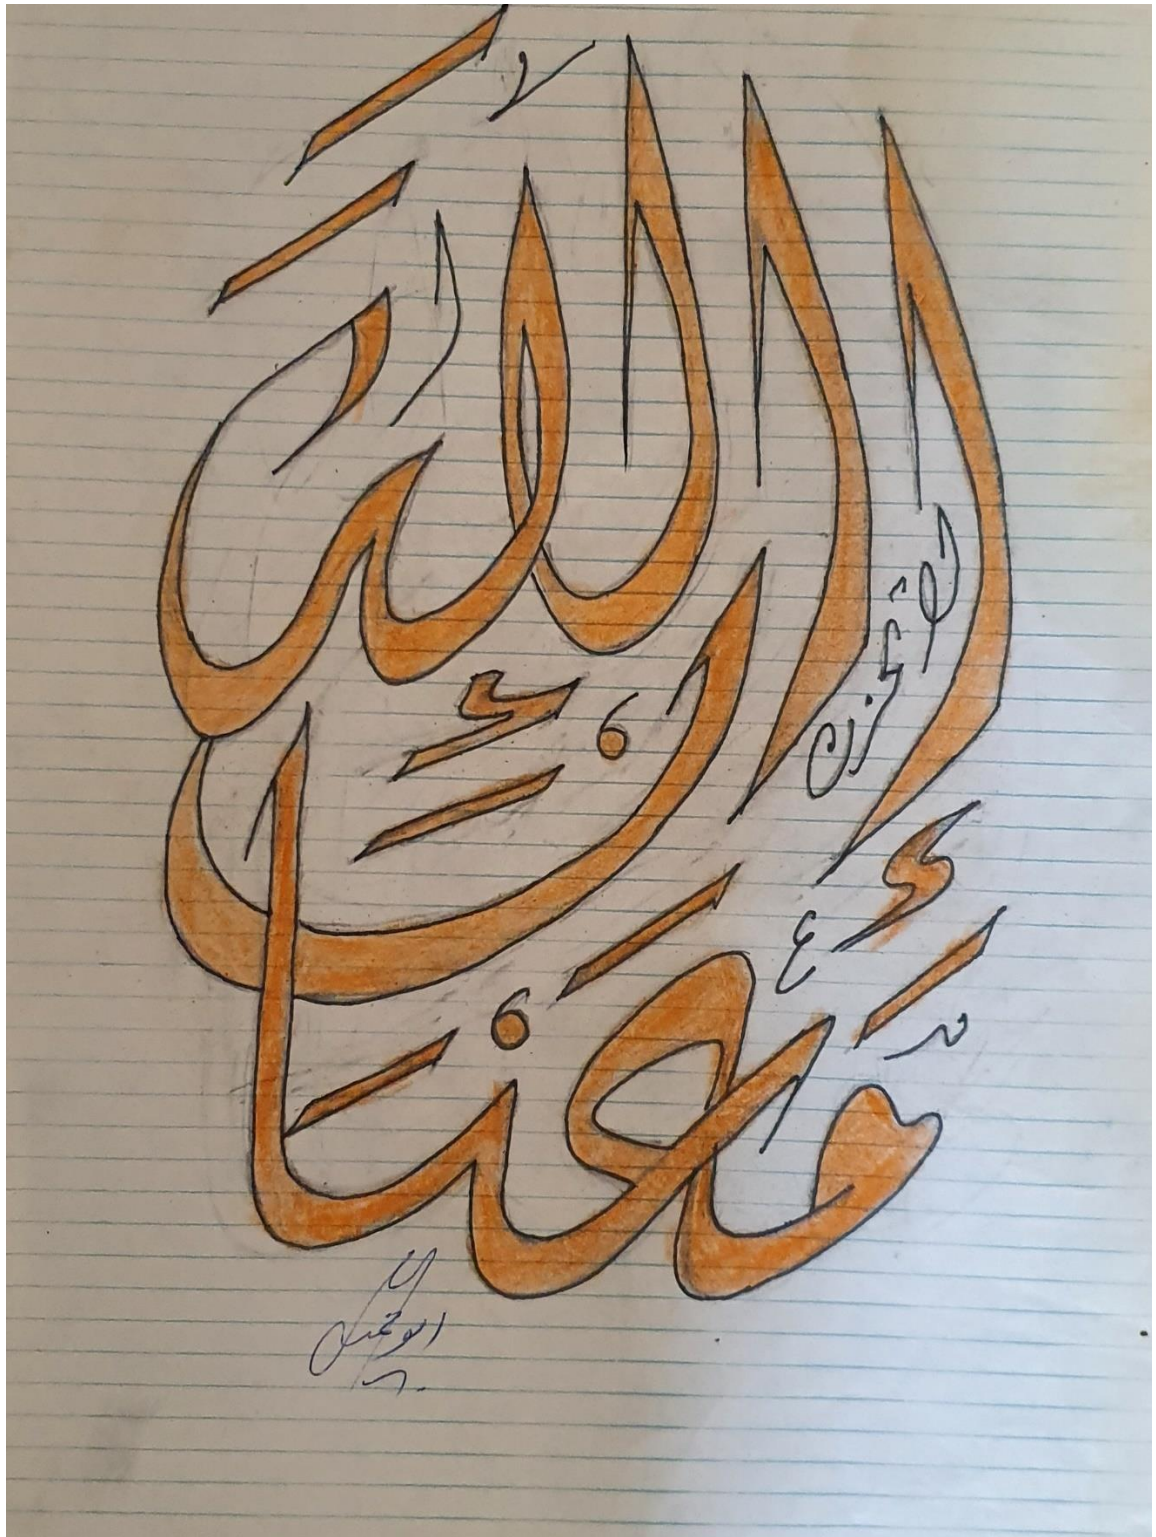 لا تحزن
إِنَّ اللَّهَ
مَعَنَا